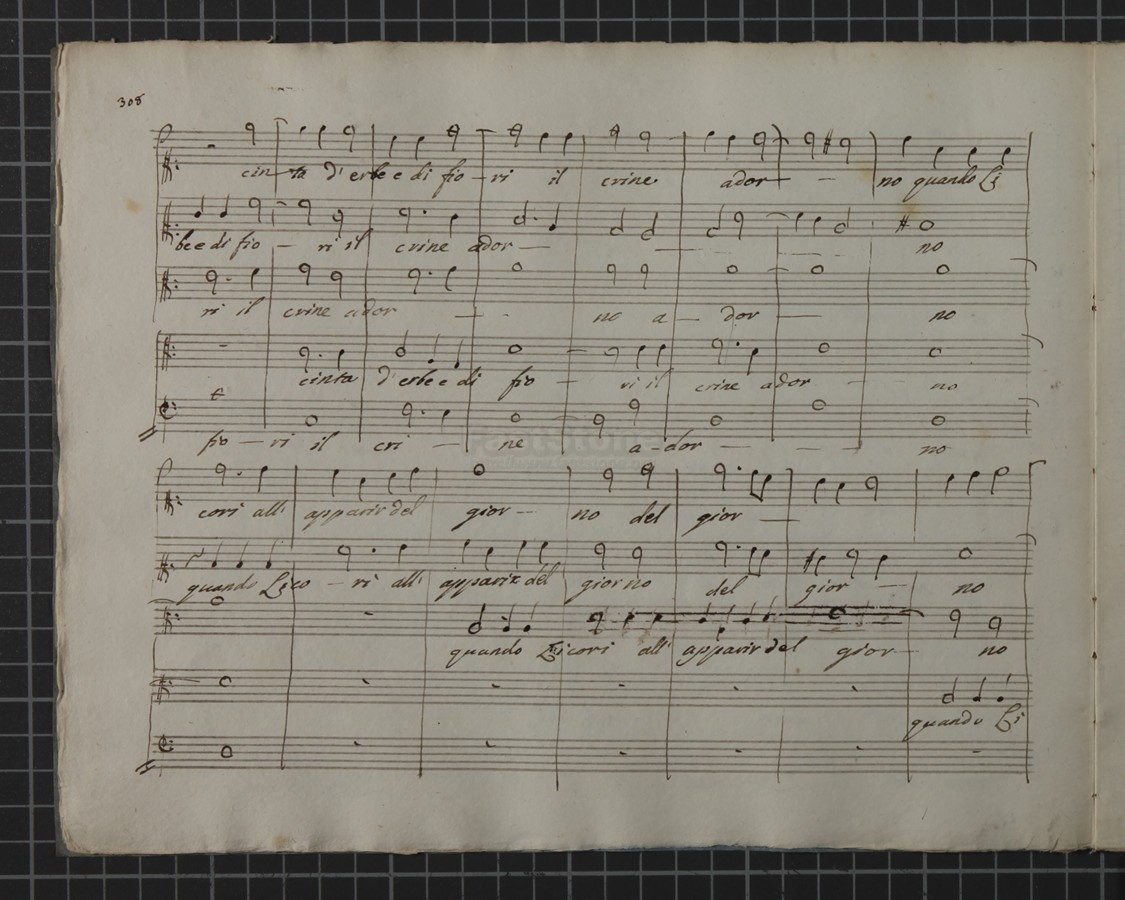 308
cin ta d'erbe e di fio - ri il crine ador - - no quando Li
bee di fio - ri il crine ador - - - no
ri il crine ador - - no a - dor - no
cinta d'erbe e di fio - ri il crine ador - no
fio - ri il cri - ne a - dor - - - no
cori all' apparir del gior - no del gior -
quando Lico - ri all' apparir del giorno del gior - no
quando Licori all' apparir del gior - no
quando Li